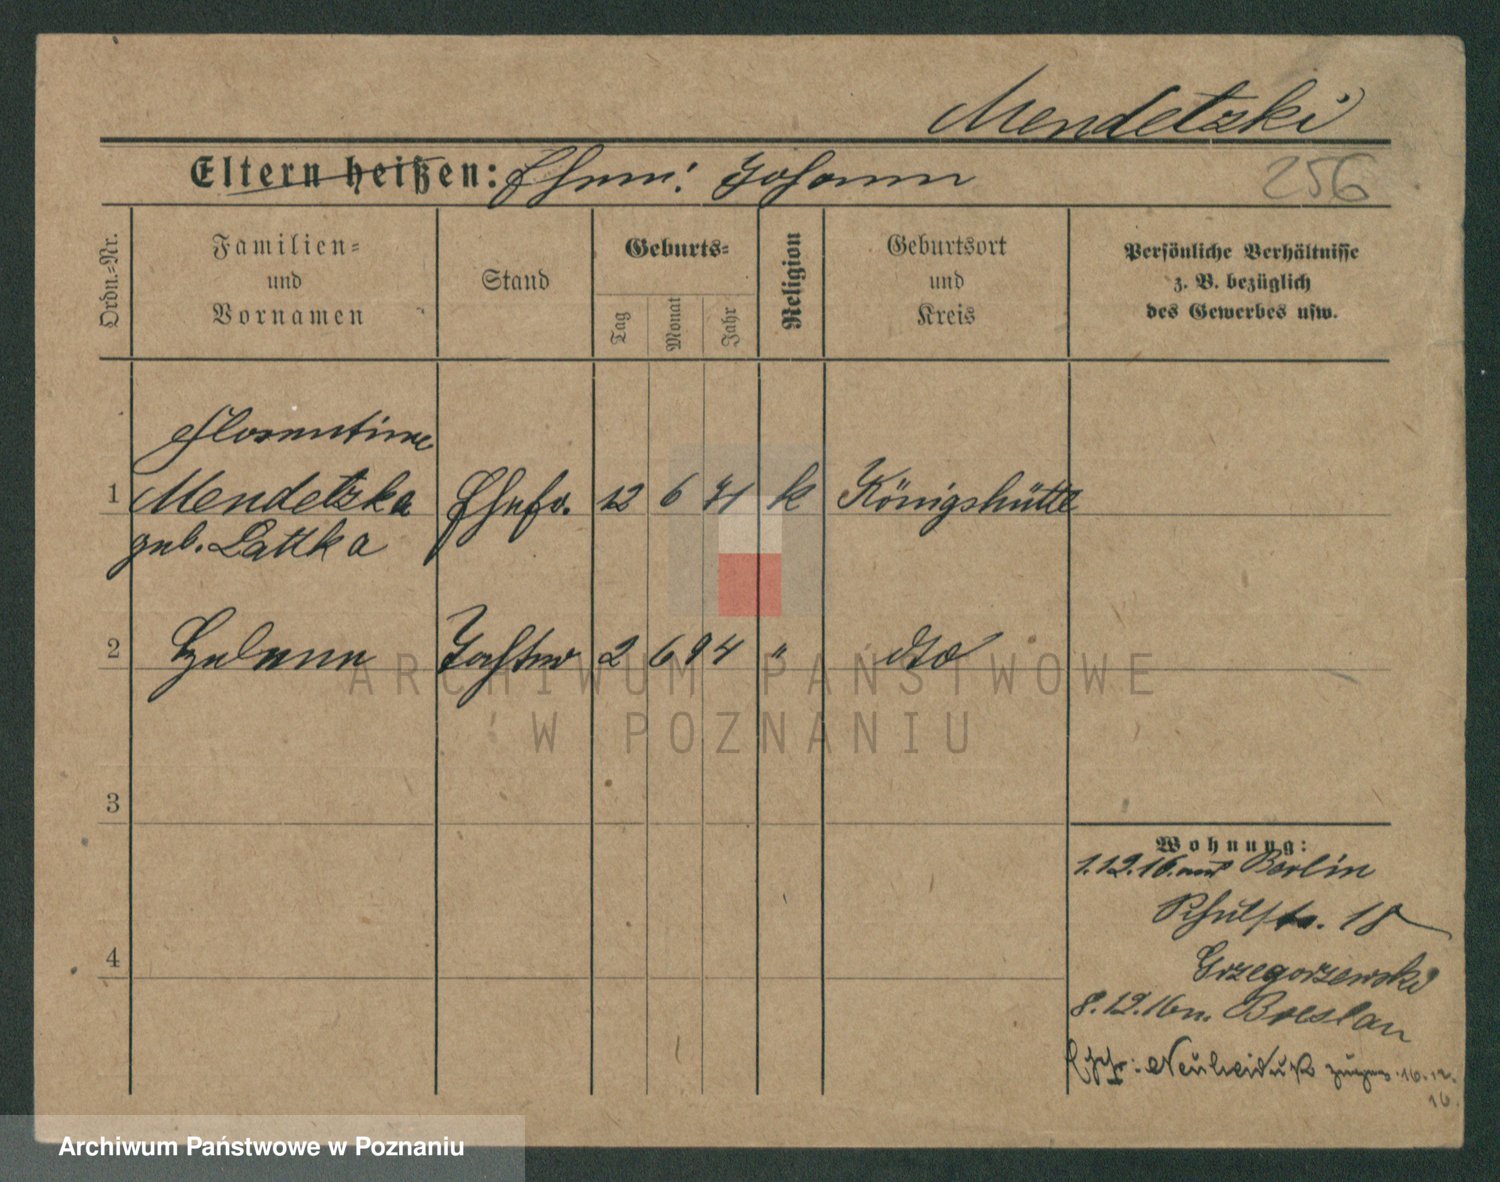 Mendetzki
Eltern heißen: Ehem: Johann
256
Ordn.=Nr.
Familien=
und
Vornamen
Stand
Geburts=
Tag
Monat
Jahr
Religion
Geburtsort
und
Kreis
Persönliche Verhältnisse
z. B. bezüglich
des Gewerbes usw.
Florentine
1 Mendetzka Ehefr. 12 6 71 k Königshütte
geb. Lattka
2 Helene Tochter 2 6 94 " dto
3
4
Wohnung:
1.12.16. aus Berlin
Schulstr. 18
Grzegorzewski
8.12.16 n. Breslau
Neuheiduk 16.12.
16.
ARCHIWUM PAŃSTWOWE
W POZNANIU
Archiwum Państwowe w Poznaniu